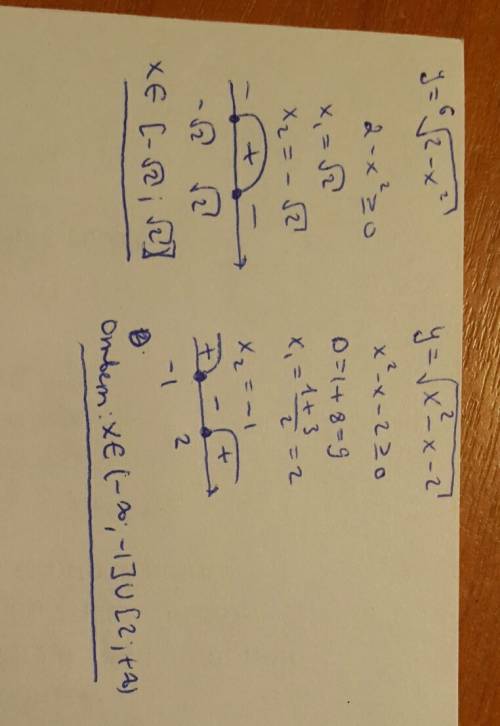 y = ⁶√(2-x²)
2-x² ≥ 0
x₁ = √2
x₂ = -√2
- + -
-√2 √2
x ∈ [-√2 ; √2]
y = √(x²-x-2)
x²-x-2 ≥ 0
D = 1+8 = 9
x₁ = (1+3)/2 = 2
x₂ = -1
+ - +
-1 2
Ответ: x ∈ (-∞; -1] ∪ [2; +∞)